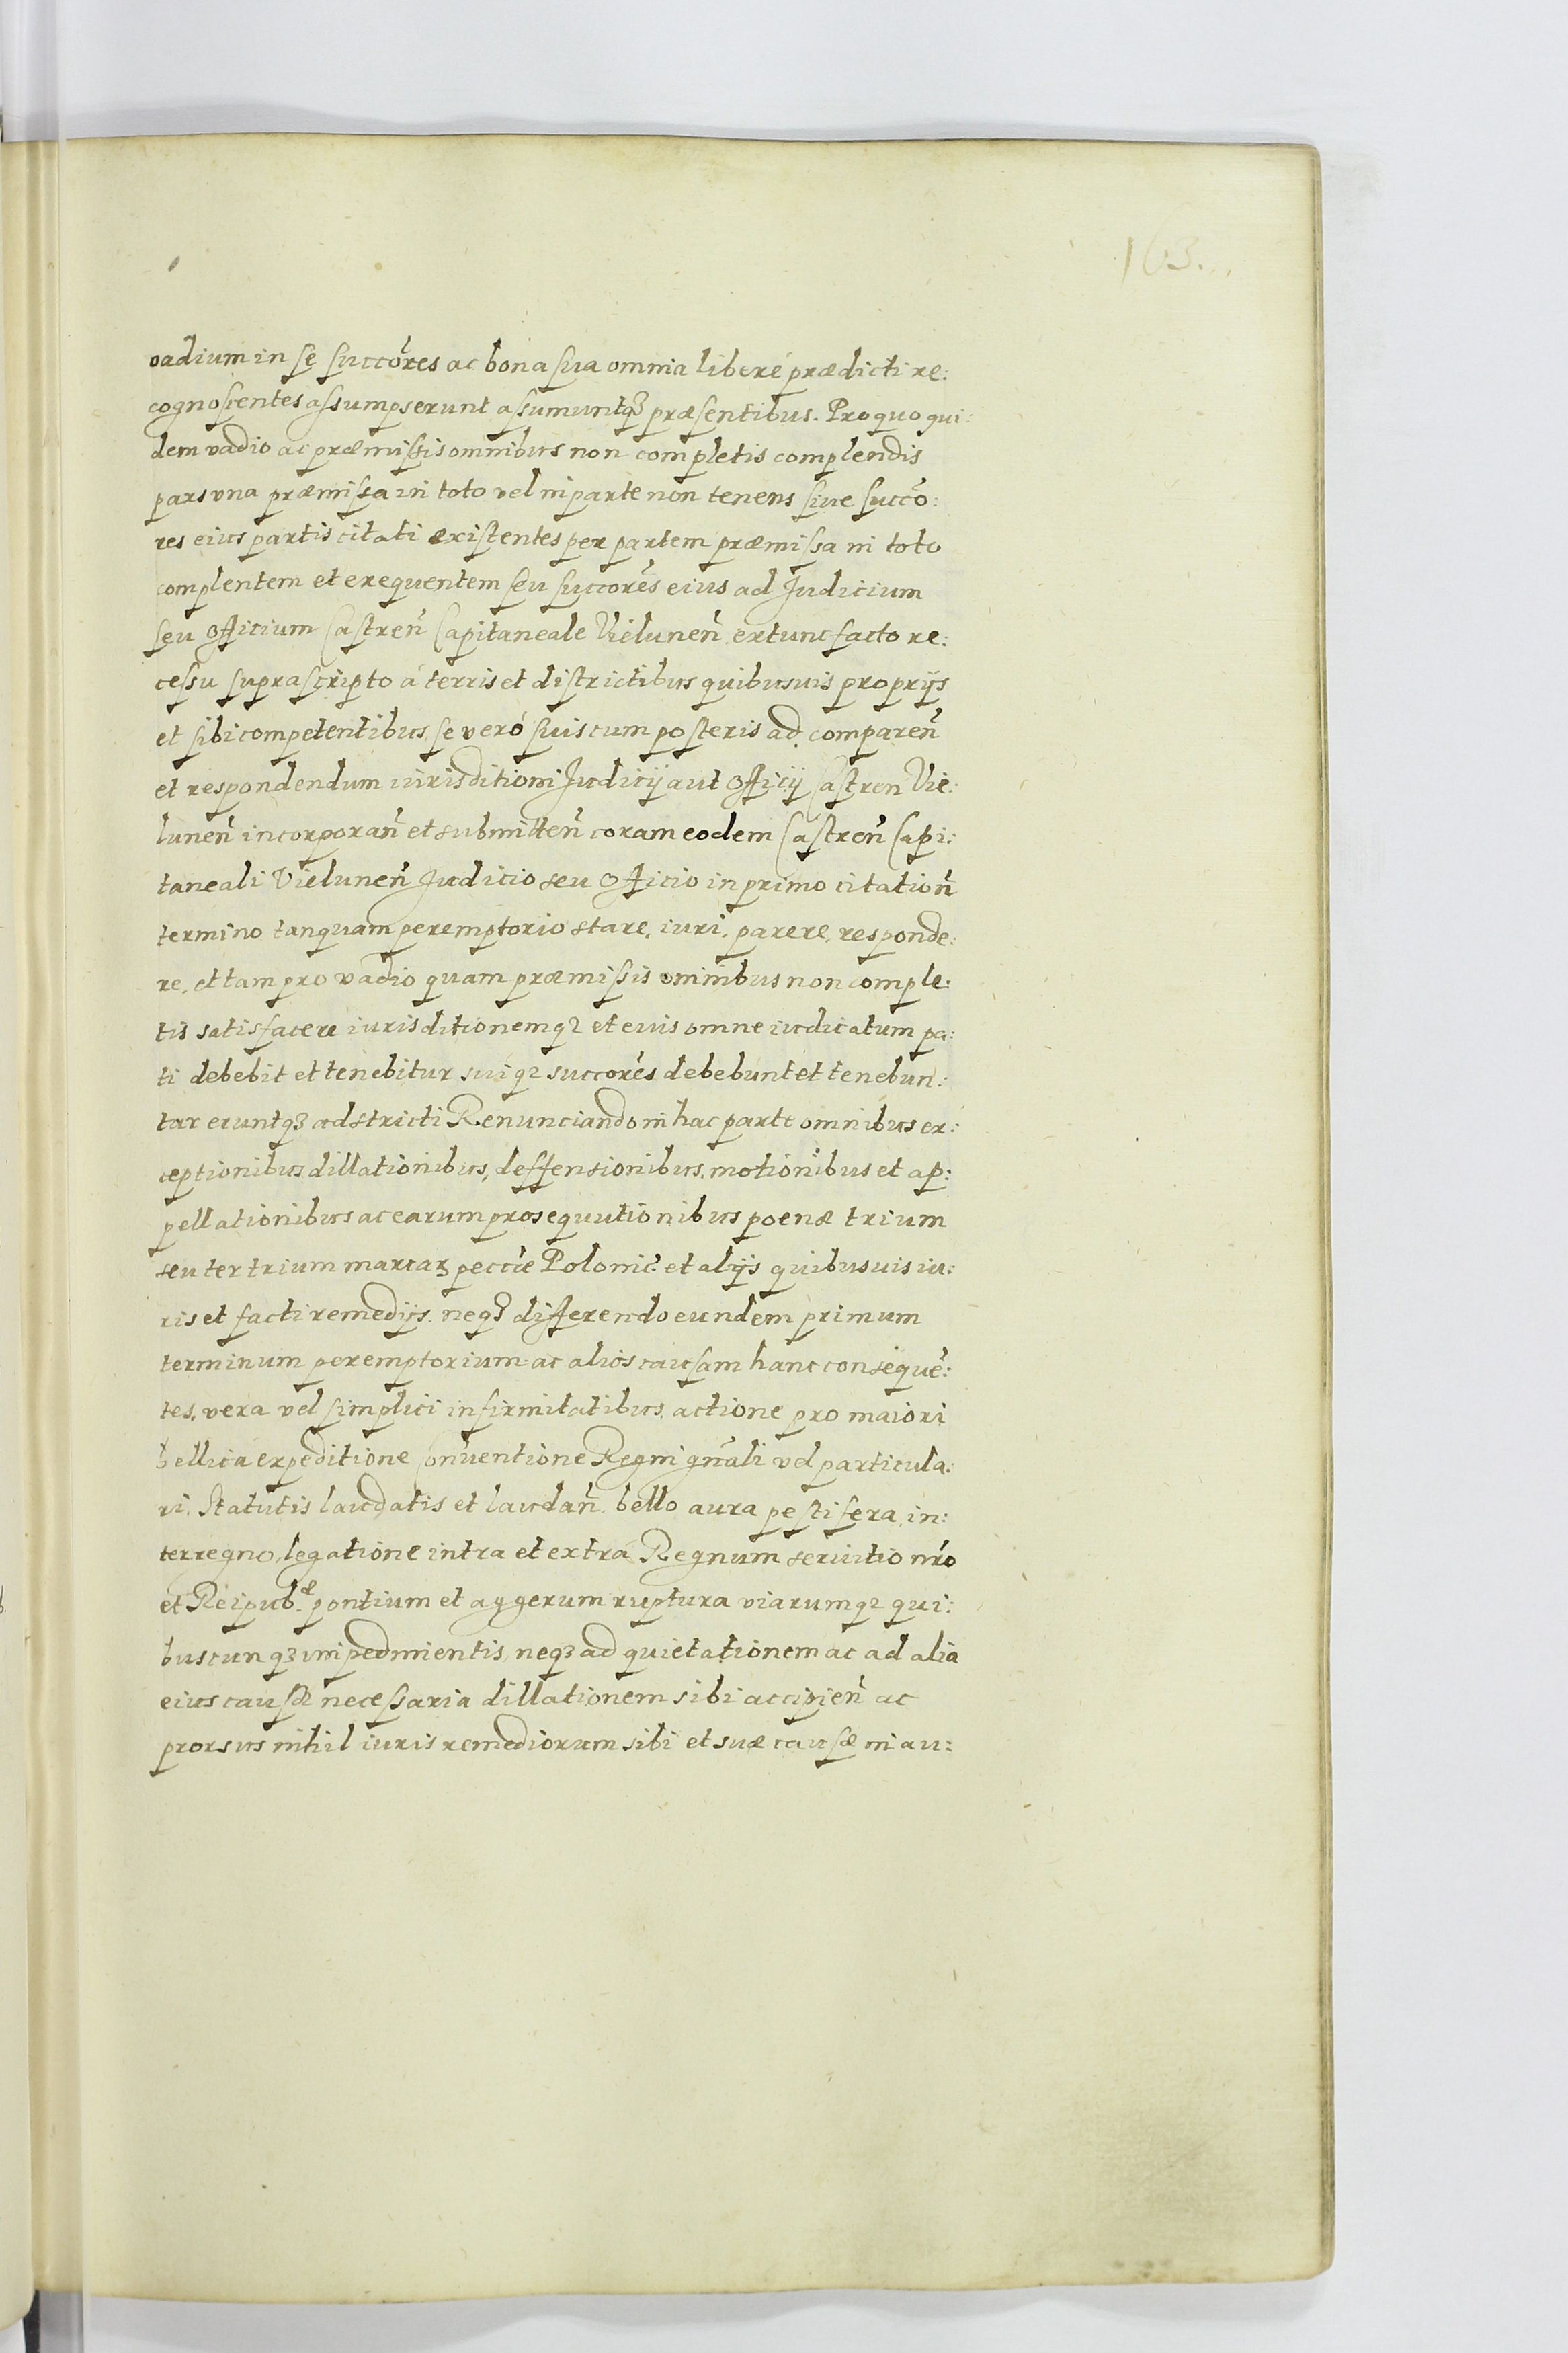 163.
vadium in se succores ac bona sua omnia liberé prædicti re:
cognoscentes assumpserunt assumuntq3 præsentibus. Pro quo qui:
dem vadio ac præmissis omnibus non completis complendis
pars vna præmissa in toto vel in parte non tenens siue succo:
res eius partis citati existentes per partem præmissa in toto
complentem et exequentem seu succores eius ad Judicium
seu Officium Castren̄ Capitaneale Vielunen̄ extunc facto re:
cessu suprascripto á terris et districtibus quibusuis proprijs
et sibi competentibus, se veró suis cum posteris ad comparen̄
et respondendum iurisditioni Judicij aut Officij Castren Vie:
lunen̄ incorporan̄ et submitten̄ coram eodem Castren̄ Capi:
taneali Vielunen̄ Judicio seu Officio in primo citation̄
termino tanquam peremptorio stare, iuri, parere, responde:
re, et tam pro vadio quam præmissis omnibus non comple:
tis satisfacere iurisditionemq3 et euis omne iudicatum pa:
ti debebit et tenebitur suiq3 succores debebunt et tenebun:
tur eruntq3 adstricti Renunciando in hac parte omnibus ex:
ceptionibus dillationibus, deffensionibus, motionibus et ap:
pellationibus ac earum prosequutionibus poenæ trium
seu ter trium marcar3 peccūe Polonic̄. et alijs quibusuis iu:
ris et facti remedijs. neq3 differendo eundem primum
terminum peremptorium ac alios causam hanc consequē:
tes, vera vel simplici infirmitatibus, actione pro maiori
bellica expeditione Conventione Regni gn̄ali vel particula:
ri, Statutis laudatis et laudan̄. bello aura pestifera, in:
terregno, legatione intra et extra Regnum seruitio nr̄o
et Reipub.æ pontium et aggerum ruptura viarumq3 qui:
buscunq3 impedimentis, neq3 ad quietationem ac ad alia
eius causæ necessaria dillationem sibi accipien̄ ac
prorsus nihil iuris remediorum sibi et suæ causæ in au: